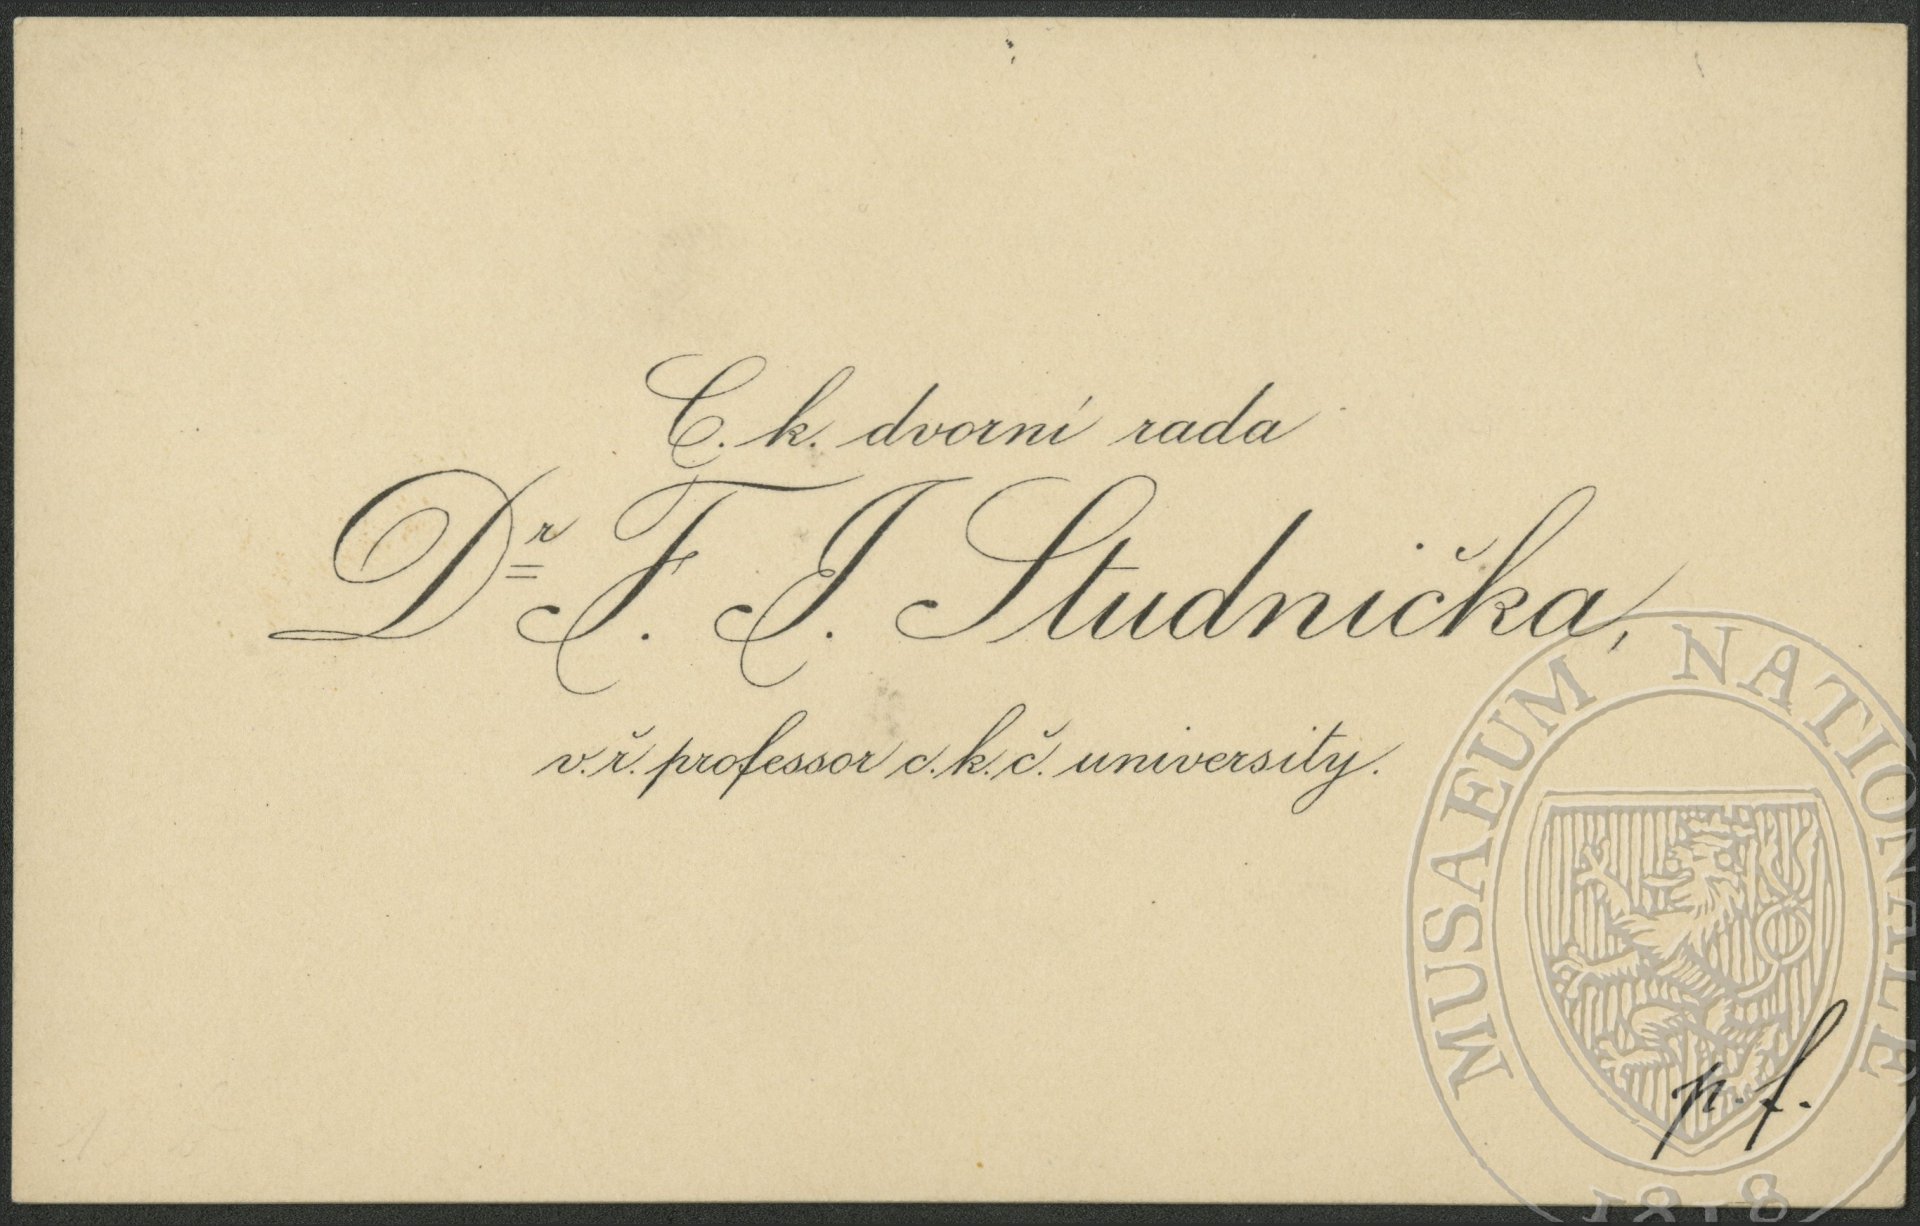 C. k. dvorní rada
Dr. F. J. Studnička,
v. ř. professor c. k. č. university.
p. f.
MUSAEUM NATIONALE
1818